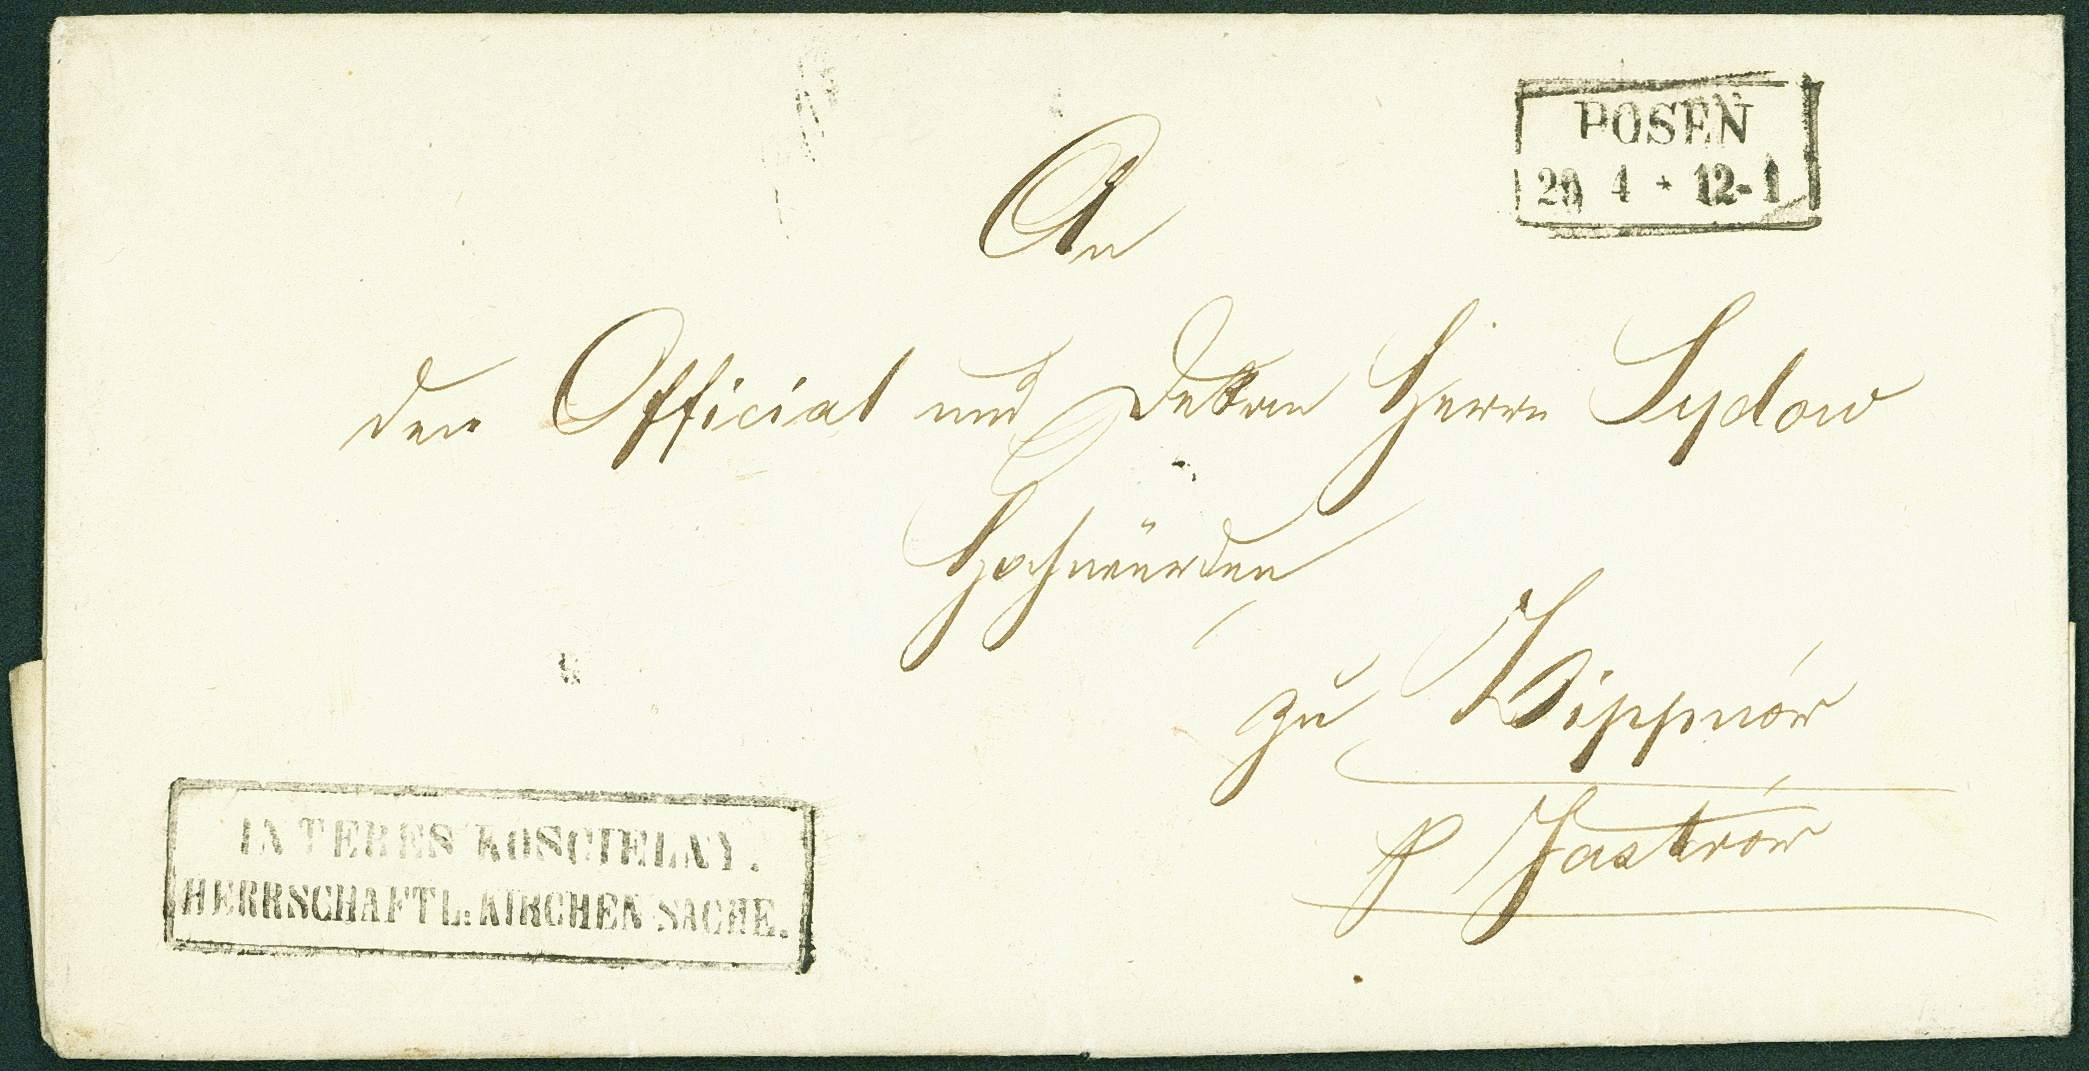 POSEN
20 4 * 12-1
An
den Official und Dekan Herrn Sydow
Hochwürden
zu Zippnow
p Jastrow
INTERES KOSCIELNY.
HERRSCHAFTL. KIRCHEN SACHE.